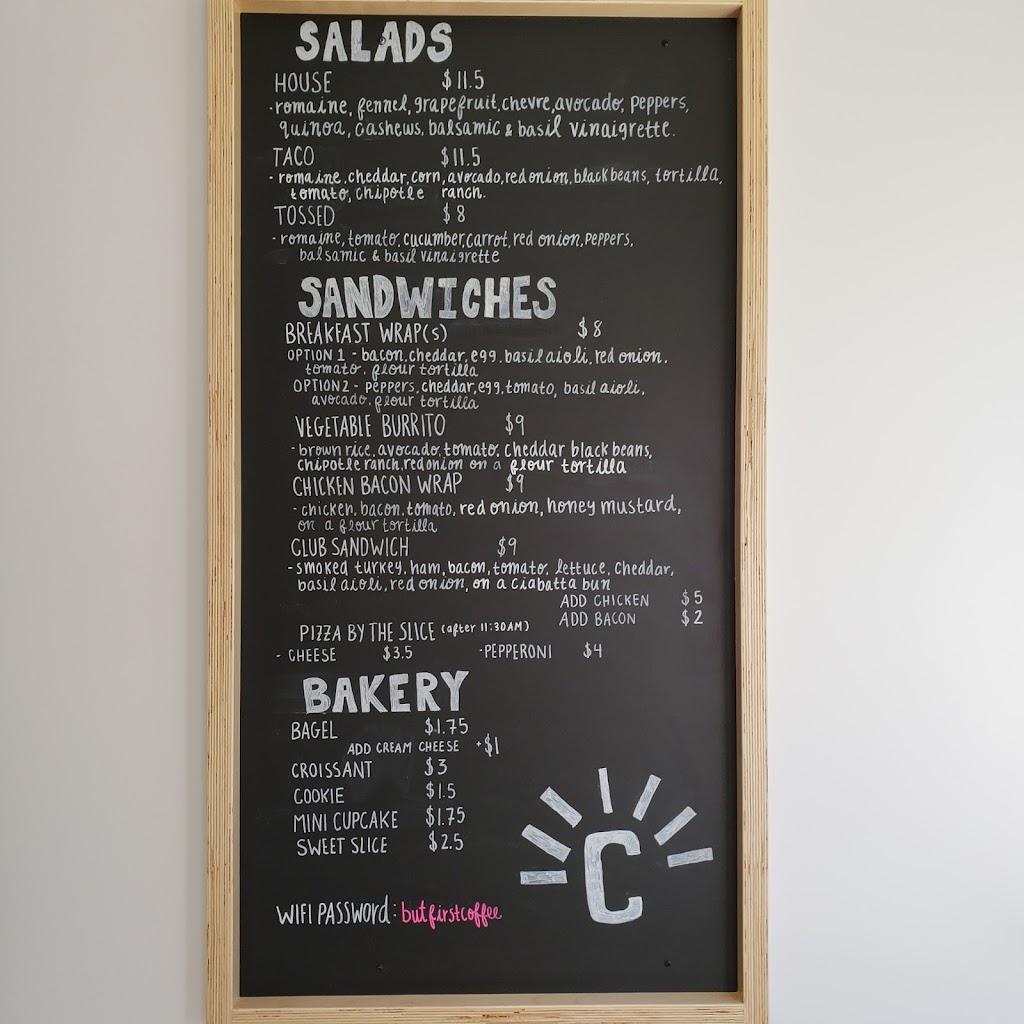 SALADS
HOUSE $11.5
- romaine, fennel, grapefruit, chevre, avocado, peppers,
quinoa, cashews, balsamic & basil vinaigrette.
TACO $11.5
- romaine, cheddar, corn, avocado, red onion, black beans, tortilla,
tomato, chipotle ranch.
TOSSED $8
- romaine, tomato, cucumber, carrot, red onion, peppers,
balsamic & basil vinaigrette
SANDWICHES
BREAKFAST WRAP(S) $8
OPTION 1 - bacon, cheddar, egg, basil aioli, red onion,
tomato, flour tortilla
OPTION 2 - peppers, cheddar, egg, tomato, basil aioli,
avocado, flour tortilla
VEGETABLE BURRITO $9
- brown rice, avocado, tomato, cheddar black beans,
chipotle ranch, red onion on a flour tortilla
CHICKEN BACON WRAP $9
- chicken, bacon, tomato, red onion, honey mustard,
on a flour tortilla
CLUB SANDWICH $9
- smoked turkey, ham, bacon, tomato, lettuce, cheddar,
basil aioli, red onion, on a ciabatta bun
ADD CHICKEN $5
ADD BACON $2
PIZZA BY THE SLICE (after 11:30AM)
- CHEESE $3.5 - PEPPERONI $4
BAKERY
BAGEL $1.75
ADD CREAM CHEESE +$1
CROISSANT $3
COOKIE $1.5
MINI CUPCAKE $1.75
SWEET SLICE $2.5
C
WIFI PASSWORD: butfirstcoffee